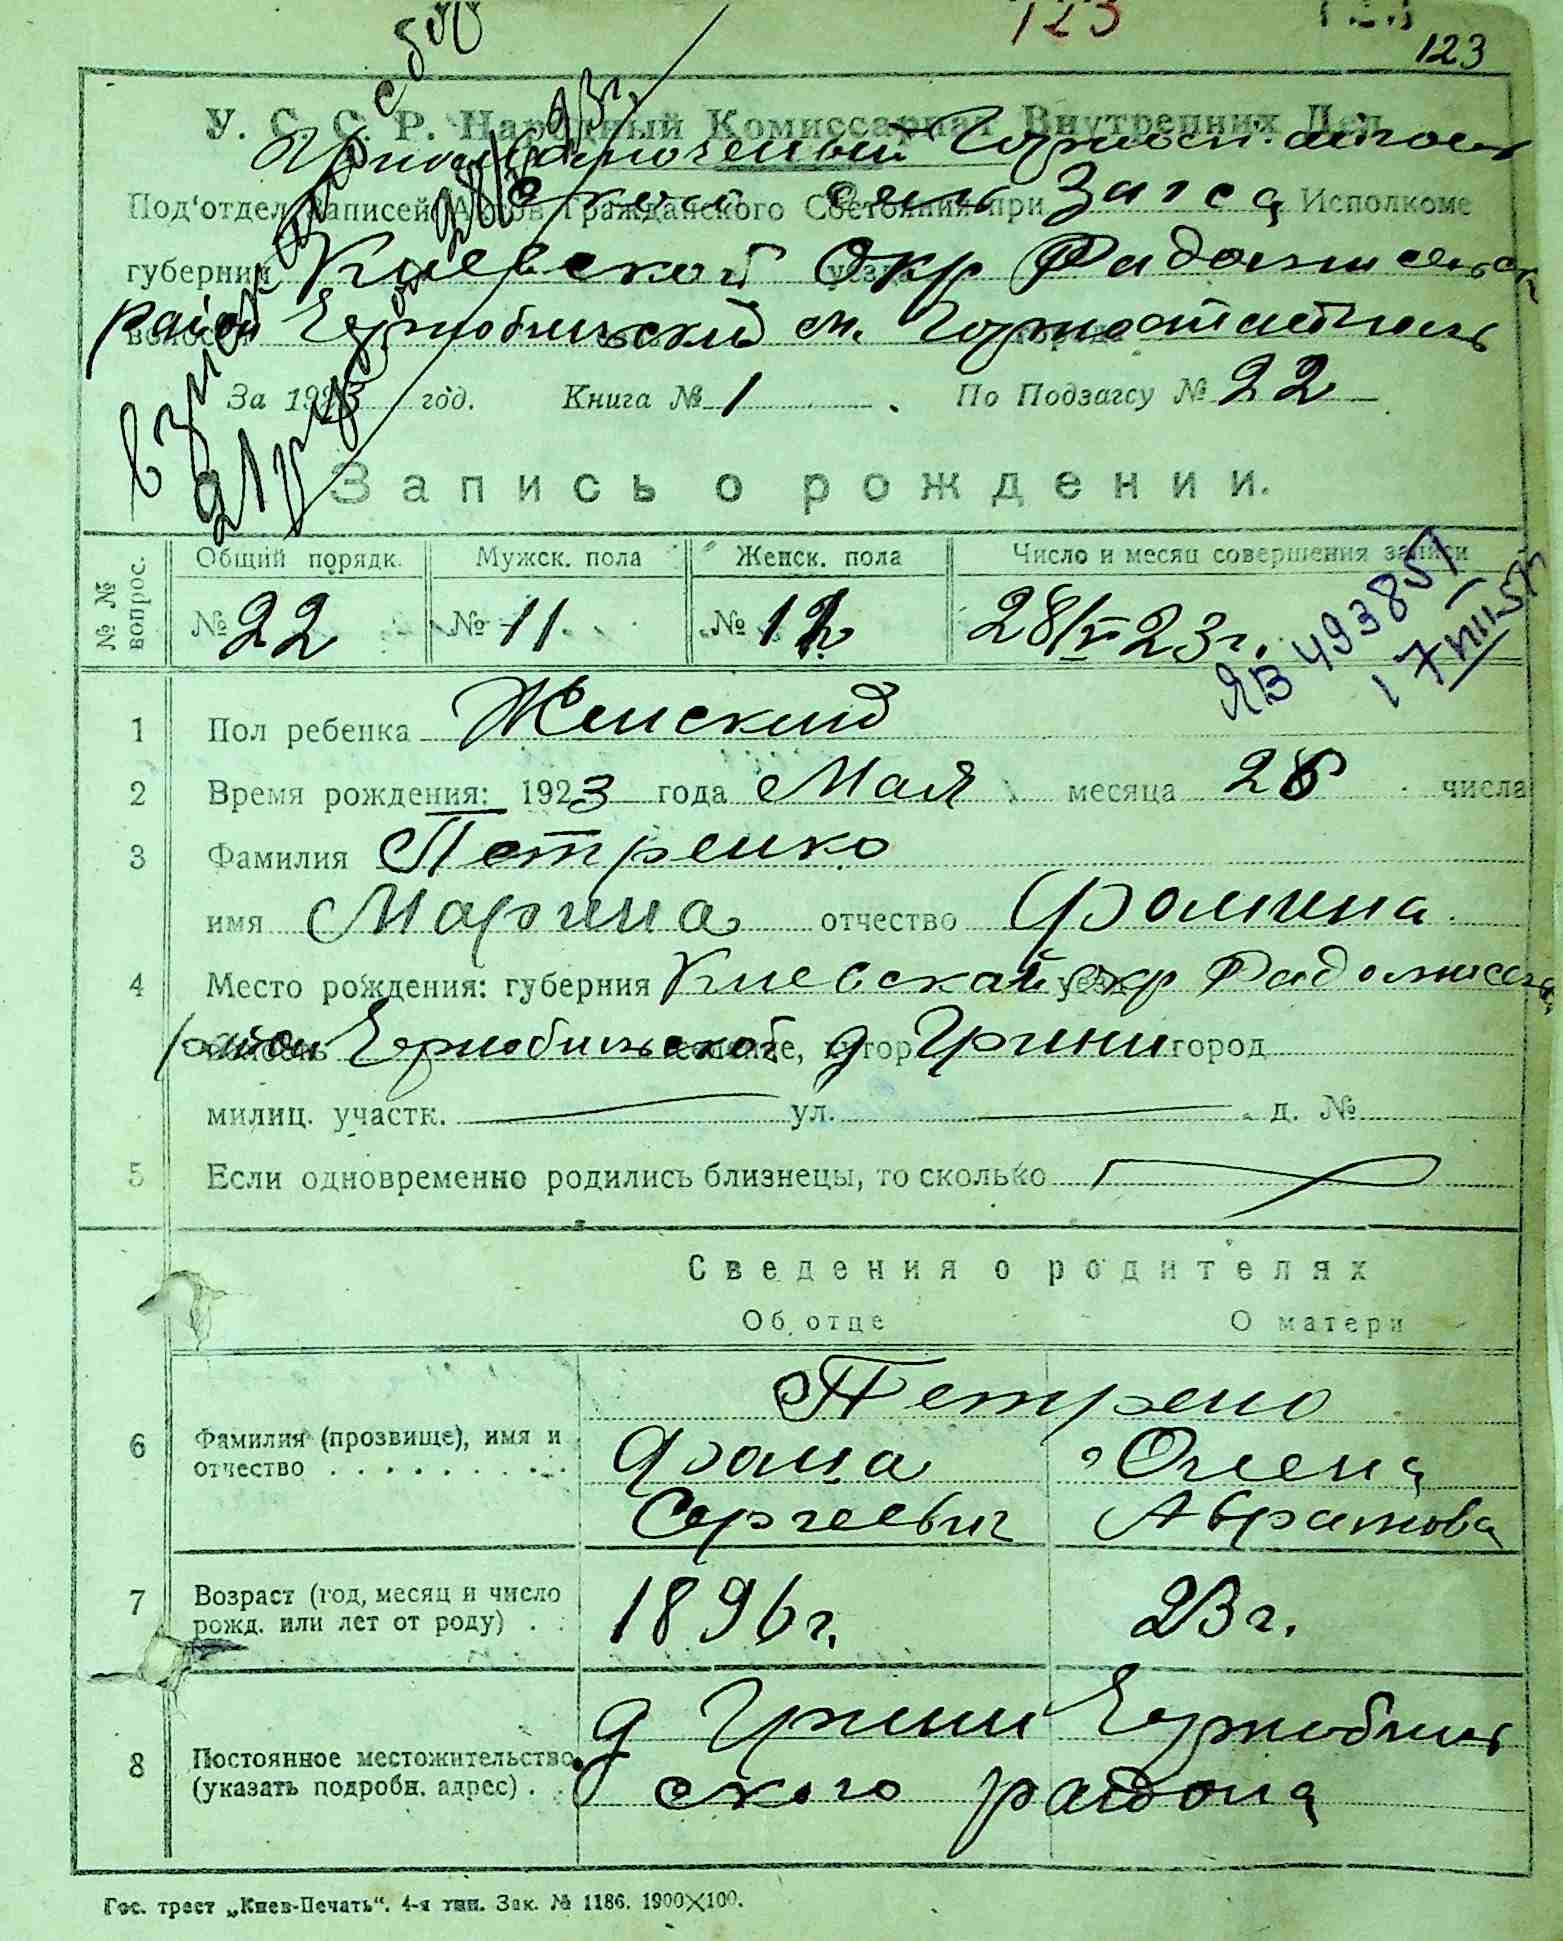 123
123
У. С. С. Р. Народный Комиссариат Внутренних Дел
Под'отдел Записей Актов Гражданского Состояния при Загса Исполкоме
губернии Киевской Окр Радомисльск
район Чернобильский м. Горностайполь
За 1923 год. Книга № 1. По Подзагсу № 22
Запись о рождении.
№№ вопрос.
Общий порядк. Мужск. пола Женск. пола Число и месяц совершения записи
№ 22 № 11 № 12 28/V 23 г.
ЯВ 493851
17
1 Пол ребенка Женский
2 Время рождения: 1923 года Мая месяца 26 числа
3 Фамилия Петренко
имя Марина отчество Фомина
4 Место рождения: губерния Киевская окр Радомисльск
район Чернобильской д Грини город
милиц. участк. ул. д. №
5 Если одновременно родились близнецы, то сколько
Сведения о родителях
Об отце О матери
Петрено
6 Фамилия (прозвище), имя и Фома Олена
отчество Сергеевич Аврамова
7 Возраст (год, месяц и число
рожд. или лет от роду) 1896 г. 23 г.
д Грини Чернобиль
8 Постоянное местожительство
(указать подробн. адрес) ского района
Гос. трест „Киев-Печать“. 4-я тип. Зак. № 1186. 1900×100.